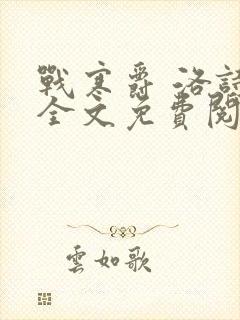 戰寒爵 洛詩
全文免費閱
雲如歌